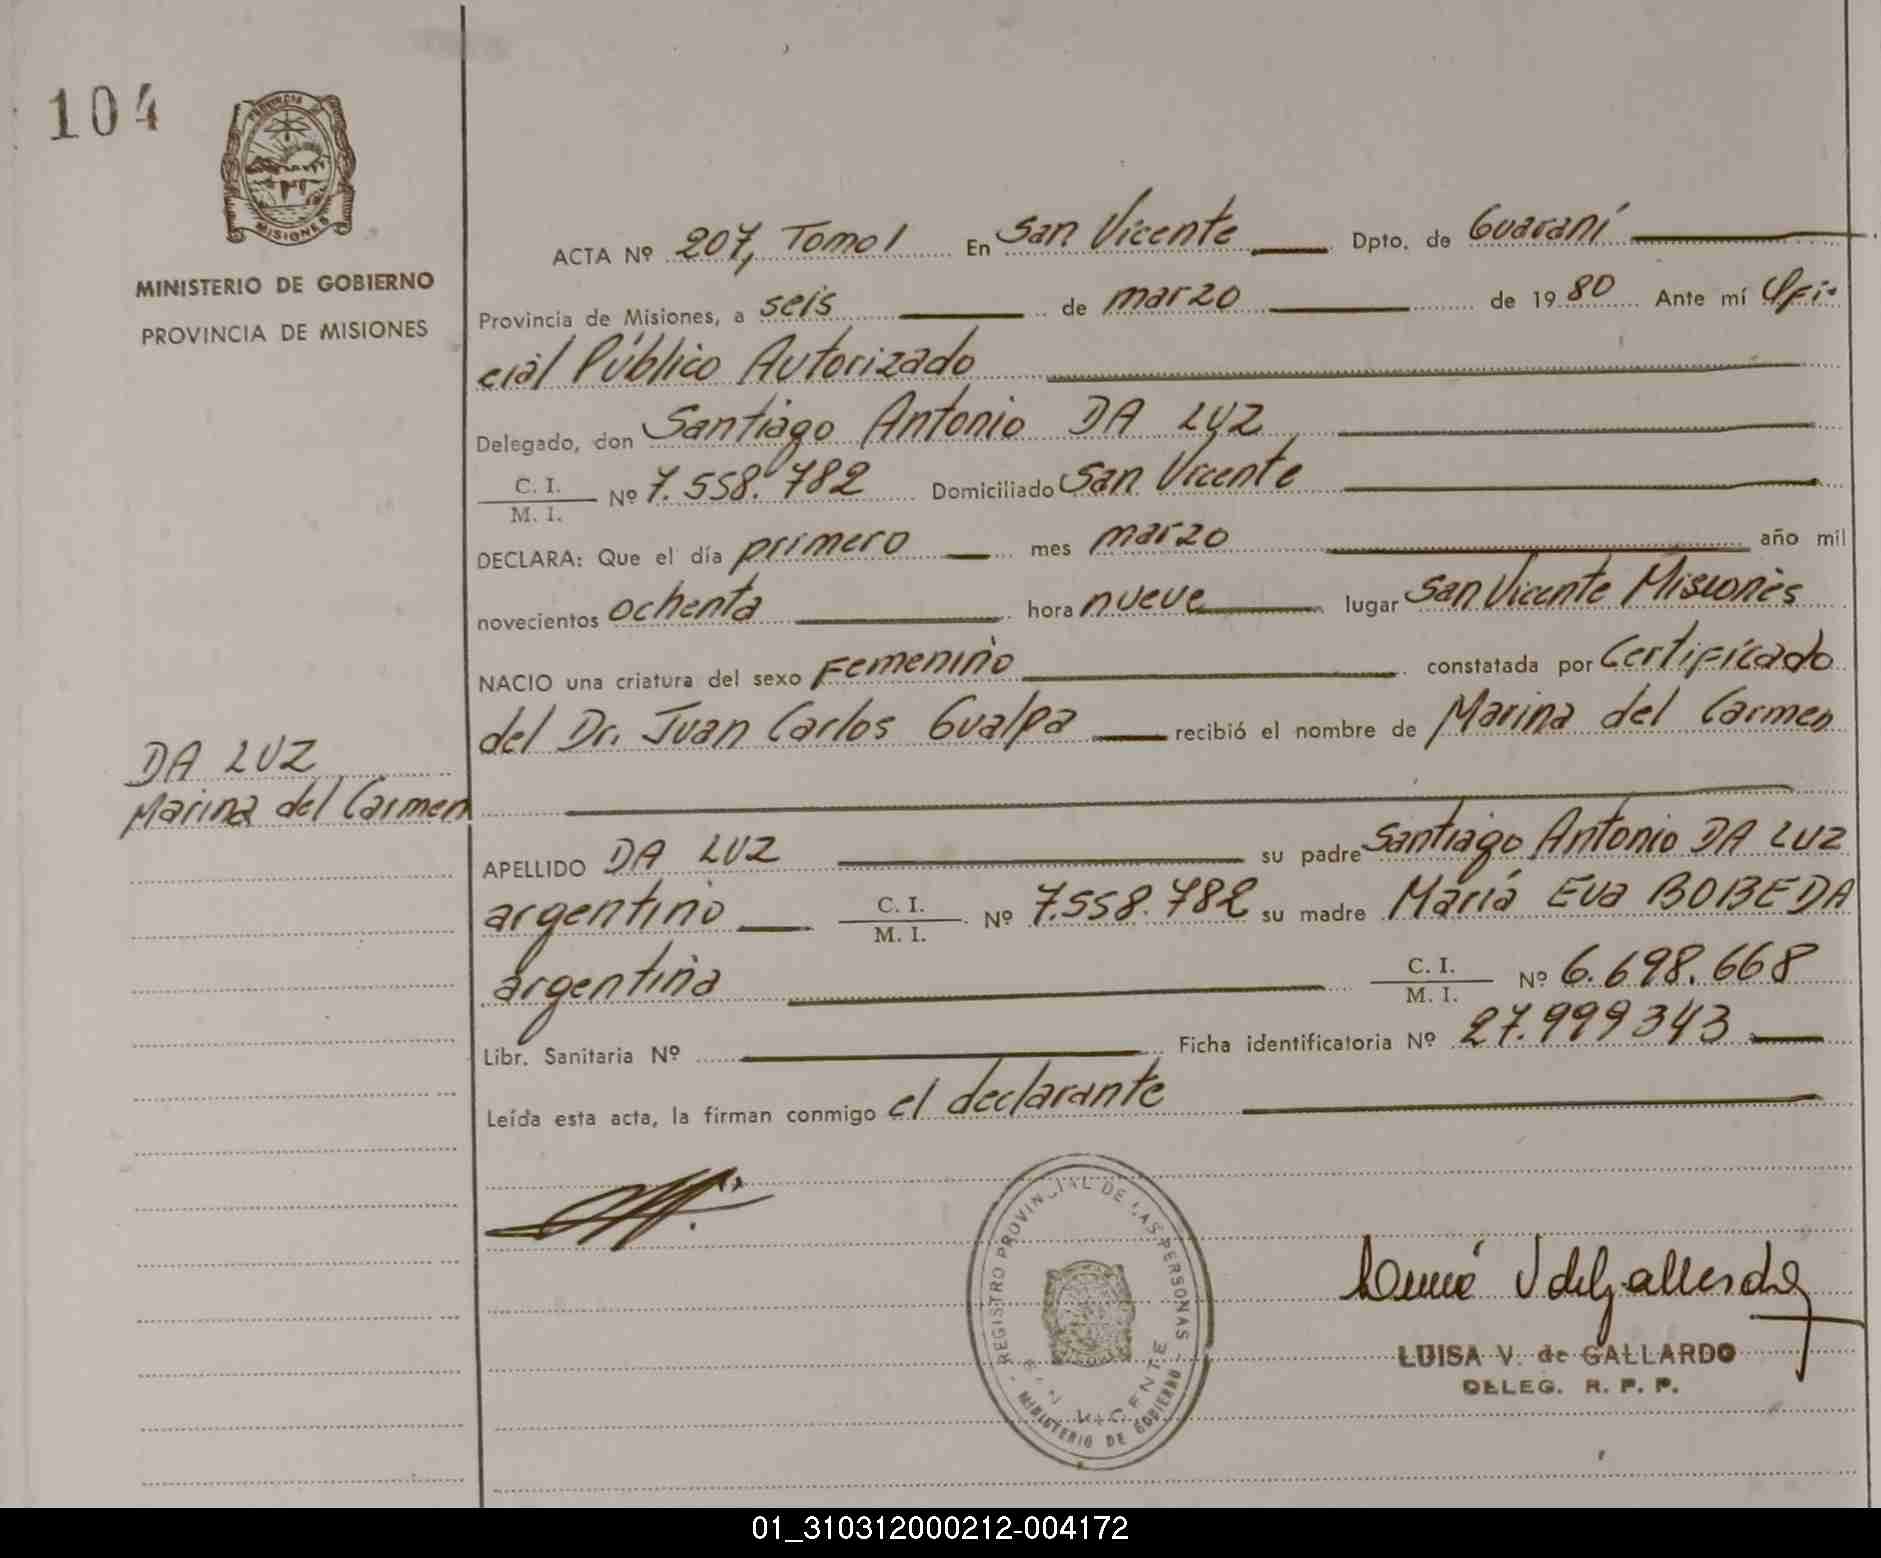 104
PROVINCIA DE
MISIONES
MINISTERIO DE GOBIERNO
PROVINCIA DE MISIONES
ACTA Nº 207, Tomo I En San Vicente Dpto. de Guaraní
Provincia de Misiones, a seis de marzo de 1980 Ante mí Ofi-
cial Público Autorizado
Delegado, don Santiago Antonio DA LUZ
C. I.
M. I. Nº 7.558.782 Domiciliado San Vicente
DECLARA: Que el día primero mes marzo año mil
novecientos ochenta hora nueve lugar San Vicente Misiones
NACIO una criatura del sexo Femenino constatada por Certificado
del Dr. Juan Carlos Gualpa recibió el nombre de Marina del Carmen
DA LUZ
Marina del Carmen
APELLIDO DA LUZ su padre Santiago Antonio DA LUZ
argentino C. I.
M. I. Nº 7.558.782 su madre María Eva BOBEDA
argentina C. I.
M. I. Nº 6.698.668
Libr. Sanitaria Nº Ficha identificatoria Nº 27.999343
Leída esta acta, la firman conmigo el declarante
REGISTRO PROVINCIAL DE LAS PERSONAS
SAN VICENTE
MINISTERIO DE GOBIERNO
V de Gallardo
LUISA V. de GALLARDO
DELEG. R. P. P.
01_310312000212-004172